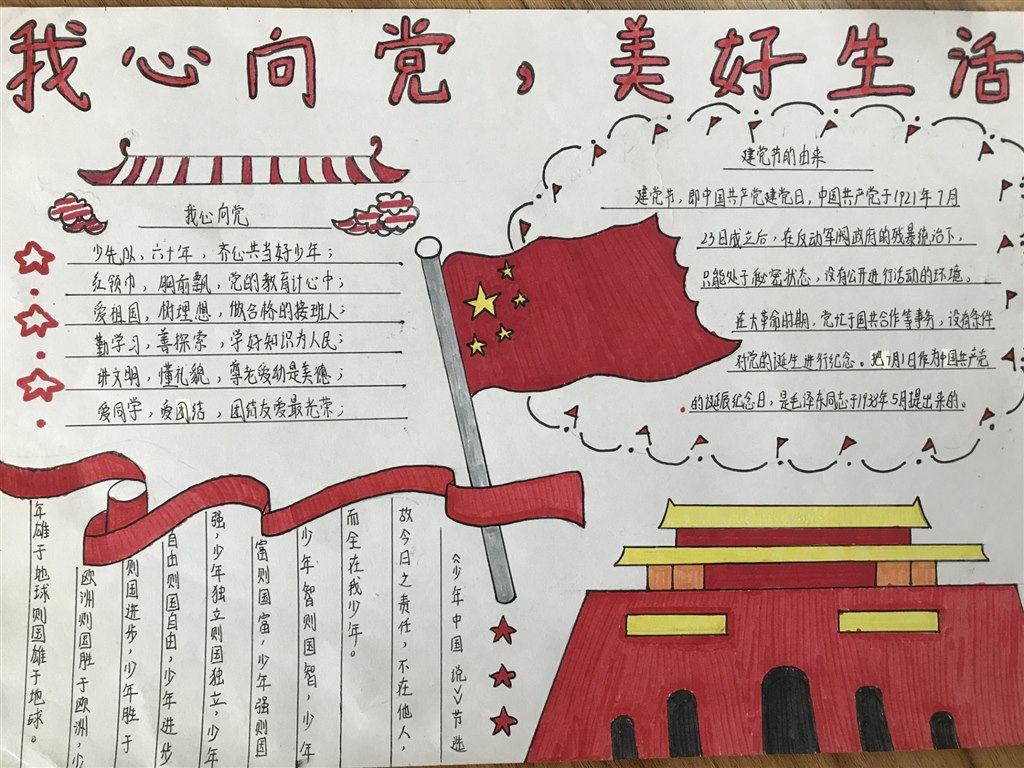 我心向党，美好生活
我心向党
少先队，六十年，齐心共当好少年；
红领巾，胸前飘，党的教育计心中；
爱祖国，树理想，做合格的接班人；
勤学习，善探索，学好知识为人民；
讲文明，懂礼貌，尊老爱幼是美德；
爱同学，爱团结，团结友爱最光荣；
建党节的由来
建党节，即中国共产党建党日，中国共产党于1921年7月
23日成立后，在反动军阀政府的残暴统治下，
只能处于秘密状态，没有公开进行活动的环境。
在大革命时期，党忙于国共合作等事务，没有条件
对党的诞生进行纪念。把7月1日作为中国共产党
的诞辰纪念日，是毛泽东同志于1938年5月提出来的。
《少年中国说》节选
故今日之责任，不在他人，
而全在我少年。
少年智则国智，少年
富则国富，少年强则国
强，少年独立则国独立，少年
自由则国自由，少年进步
则国进步，少年胜于
欧洲则国胜于欧洲，少
年雄于地球则国雄于地球。